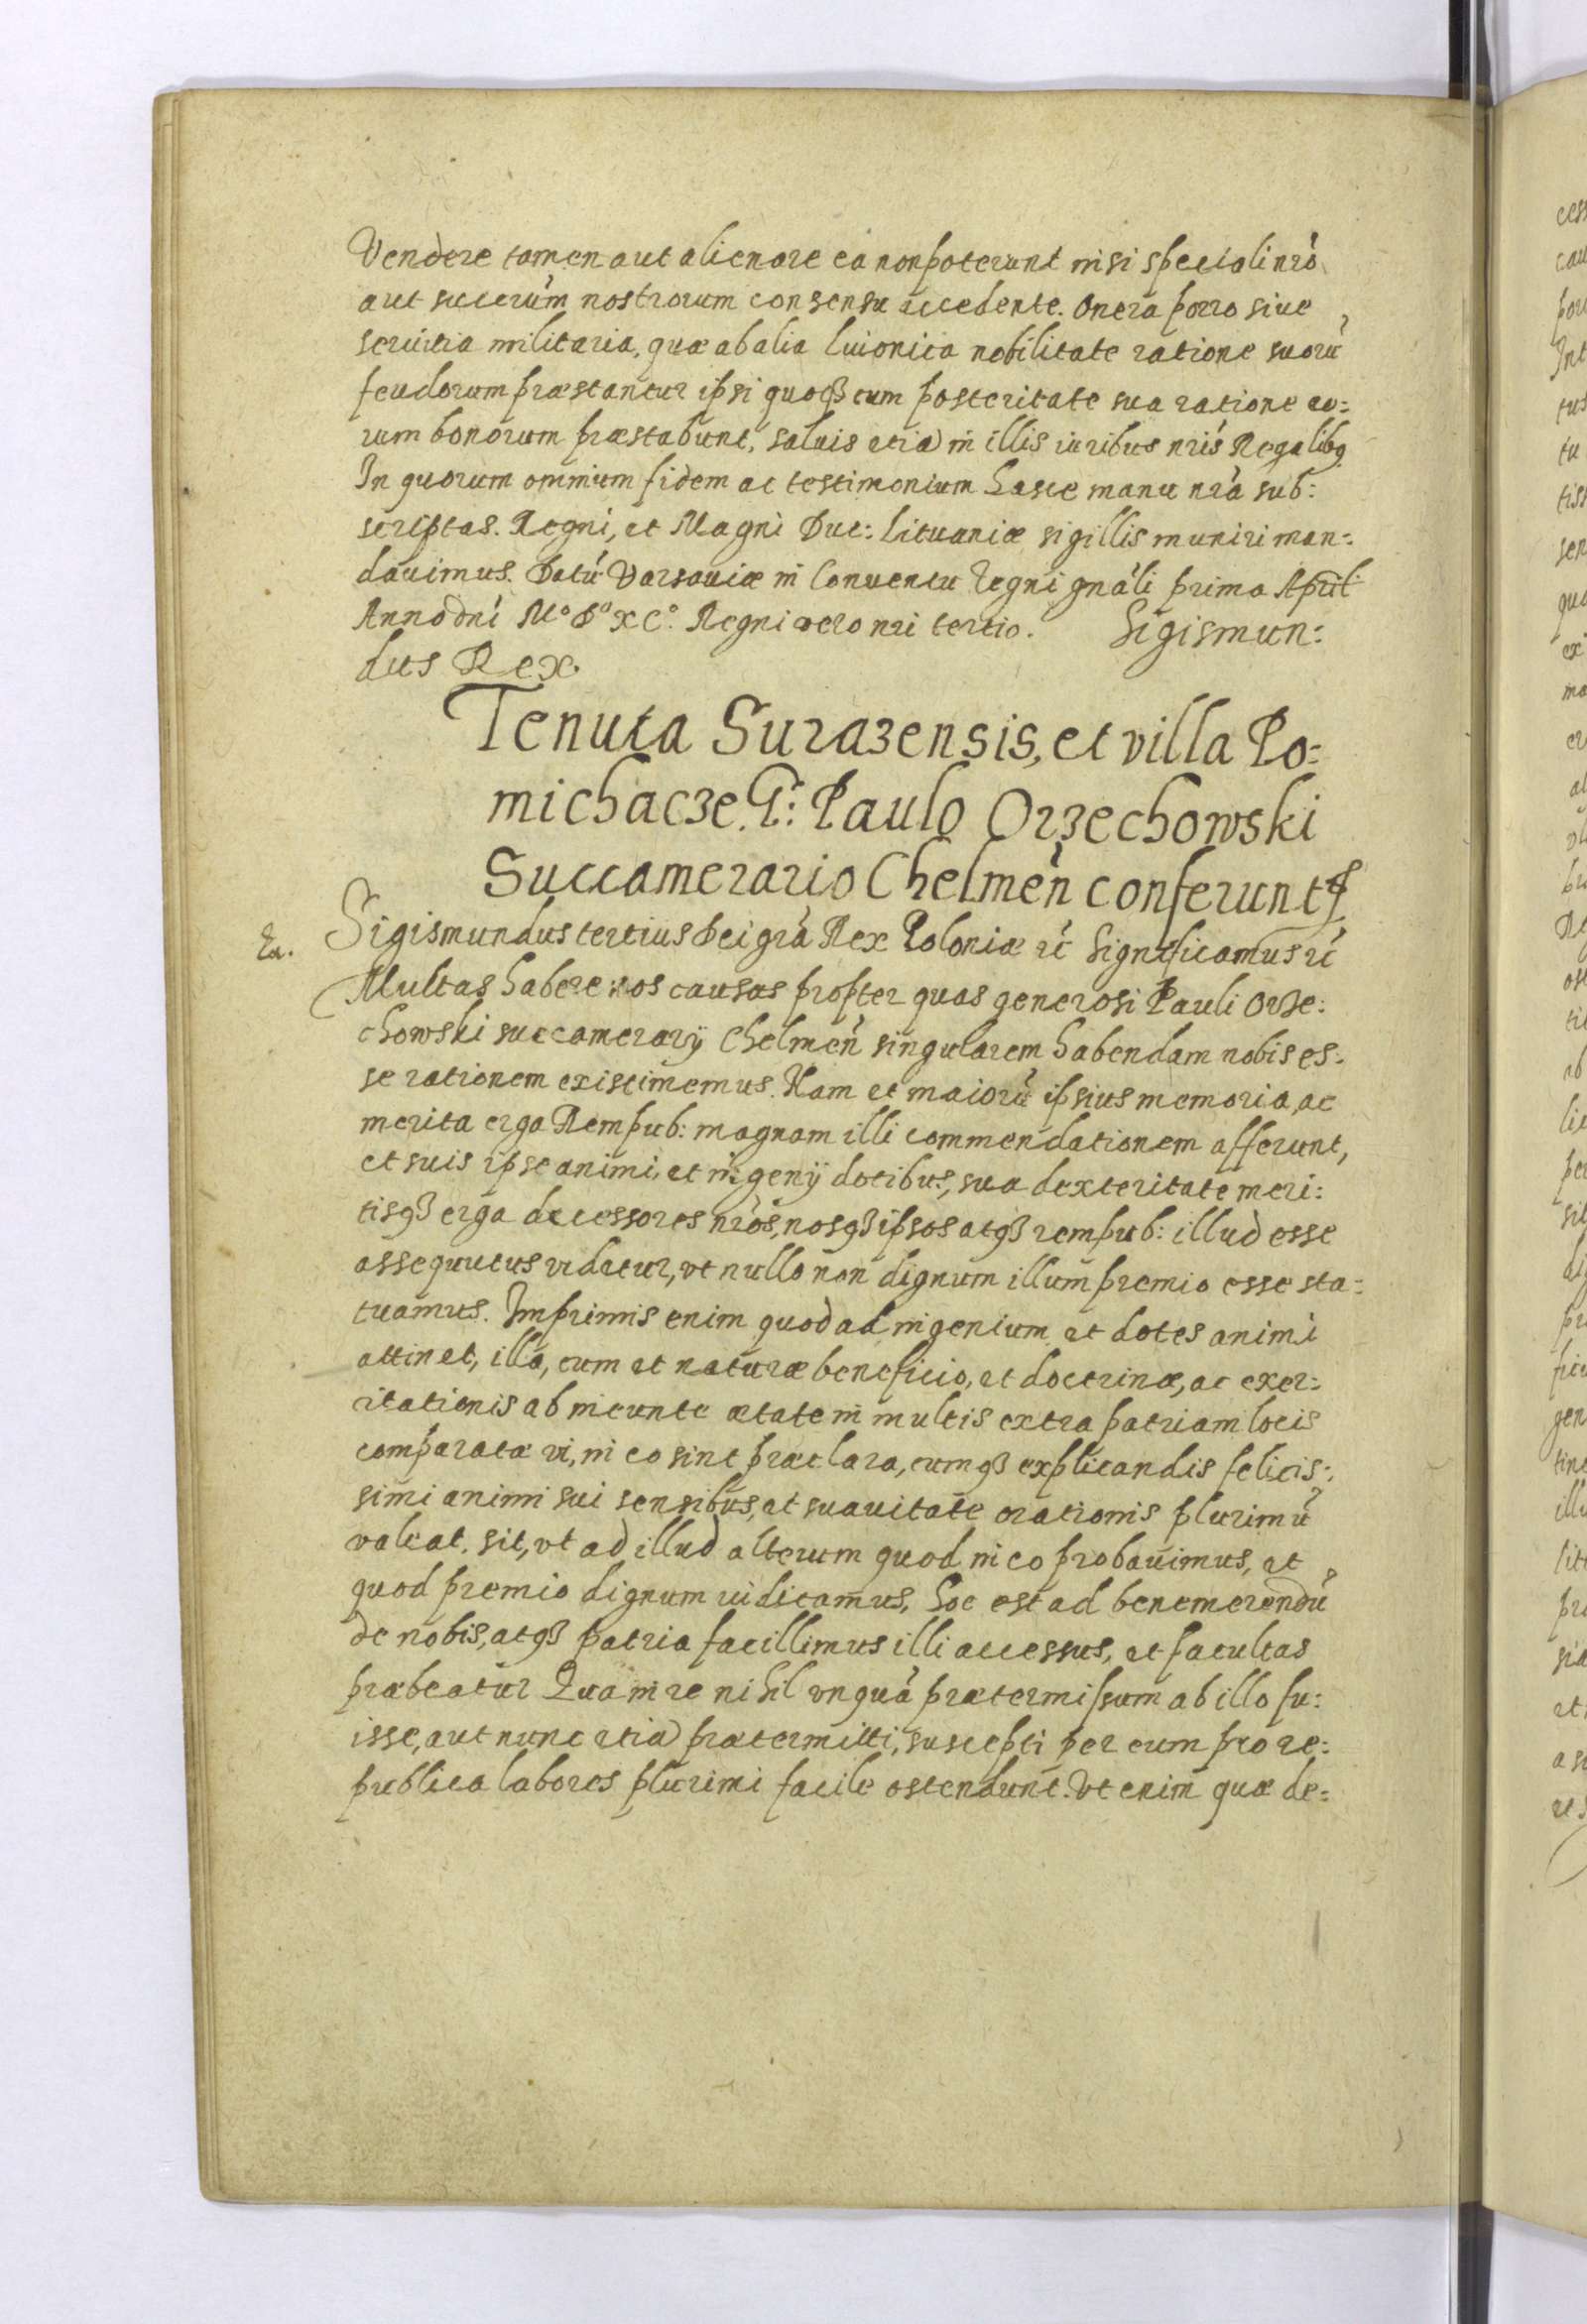 Vendere tamen aut alienare ea non poterunt nisi speciali nrõ
aut succerum nostrorum consensu accedente. Onera porro siue
seruitia militaria, quæ ab alia liuonica nobilitate ratione suorũ
feudorum præstantur ipsi quoqз cum posteritate sua ratione eo:
rum bonorum præstabunt, saluis etiã in illis iuribus nris Regalibq
In quorum omnium fidem ac testimonium hasce manu nrã sub:
scriptas. Regni, et Magni Duc: Lituaniæ sigillis muniri man:
dauimus. Datũ Varsauiæ in Conuentu Regni gnãli prima April
Anno dni Mº Dº XCº. Regni vero nri tertio. Sigismun:
dus Rex.
Tenuta Suraзensis, et villa Po:
michacзe. G: Paulo Orзechowski
Succamerario Chelmeñ conferuntr
Ra. Sigismundus tertius Dei grã Rex Poloniæ rc Significamus rc
Multas habere nos causas propter quas generosi Pauli Orзe:
chowski succamerarÿ Chelmeñ singularem habendam nobis es:
se rationem existimemus. Nam et maiorũ ipsius memoria, ac
merita erga Rempub: magnam illi commendationem afferunt,
et suis ipse animi, et ingenÿ dotibus, sua dexteritate meri:
tisqз erga decessores nros, nosqз ipsos atqз rempub: illud esse
assequutus videtur, vt nullo non dignum illum premio esse sta:
tuamus. Imprimis enim quod ad ingenium et dotes animi
attinet, illa, cum et naturæ beneficio, et doctrinæ, ac exer:
citationis ab ineunte ætate in multis extra patriam locis
comparatæ vi, in eo sint præclara, cumqз explicandis felicis:
simi animi sui sensibus, et suauitate orationis plurimũ
valeat. sit, vt ad illud alterum quod in eo probauimus, et
quod premio dignum iudicamus, hoc est ad benemerendũ
de nobis, atqз patria facillimus illi accessus, et facultas
præbeatur Qua in re nihil vnquã prætermissum ab illo fu:
isse, aut nunc etiã prætermitti, suscepti per eum pro re:
publica labores plurimi facile ostendunt. Vt enim quæ de: